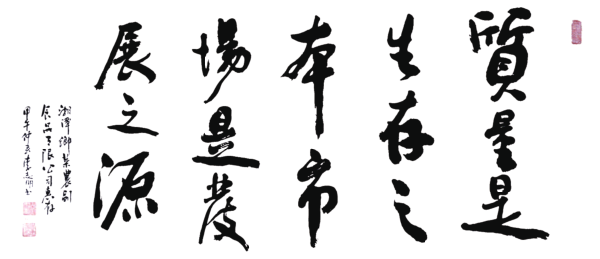 質量是
生存之
本市
場是發
展之源
湘潭御菜農副
食品有限公司惠存
甲午仲